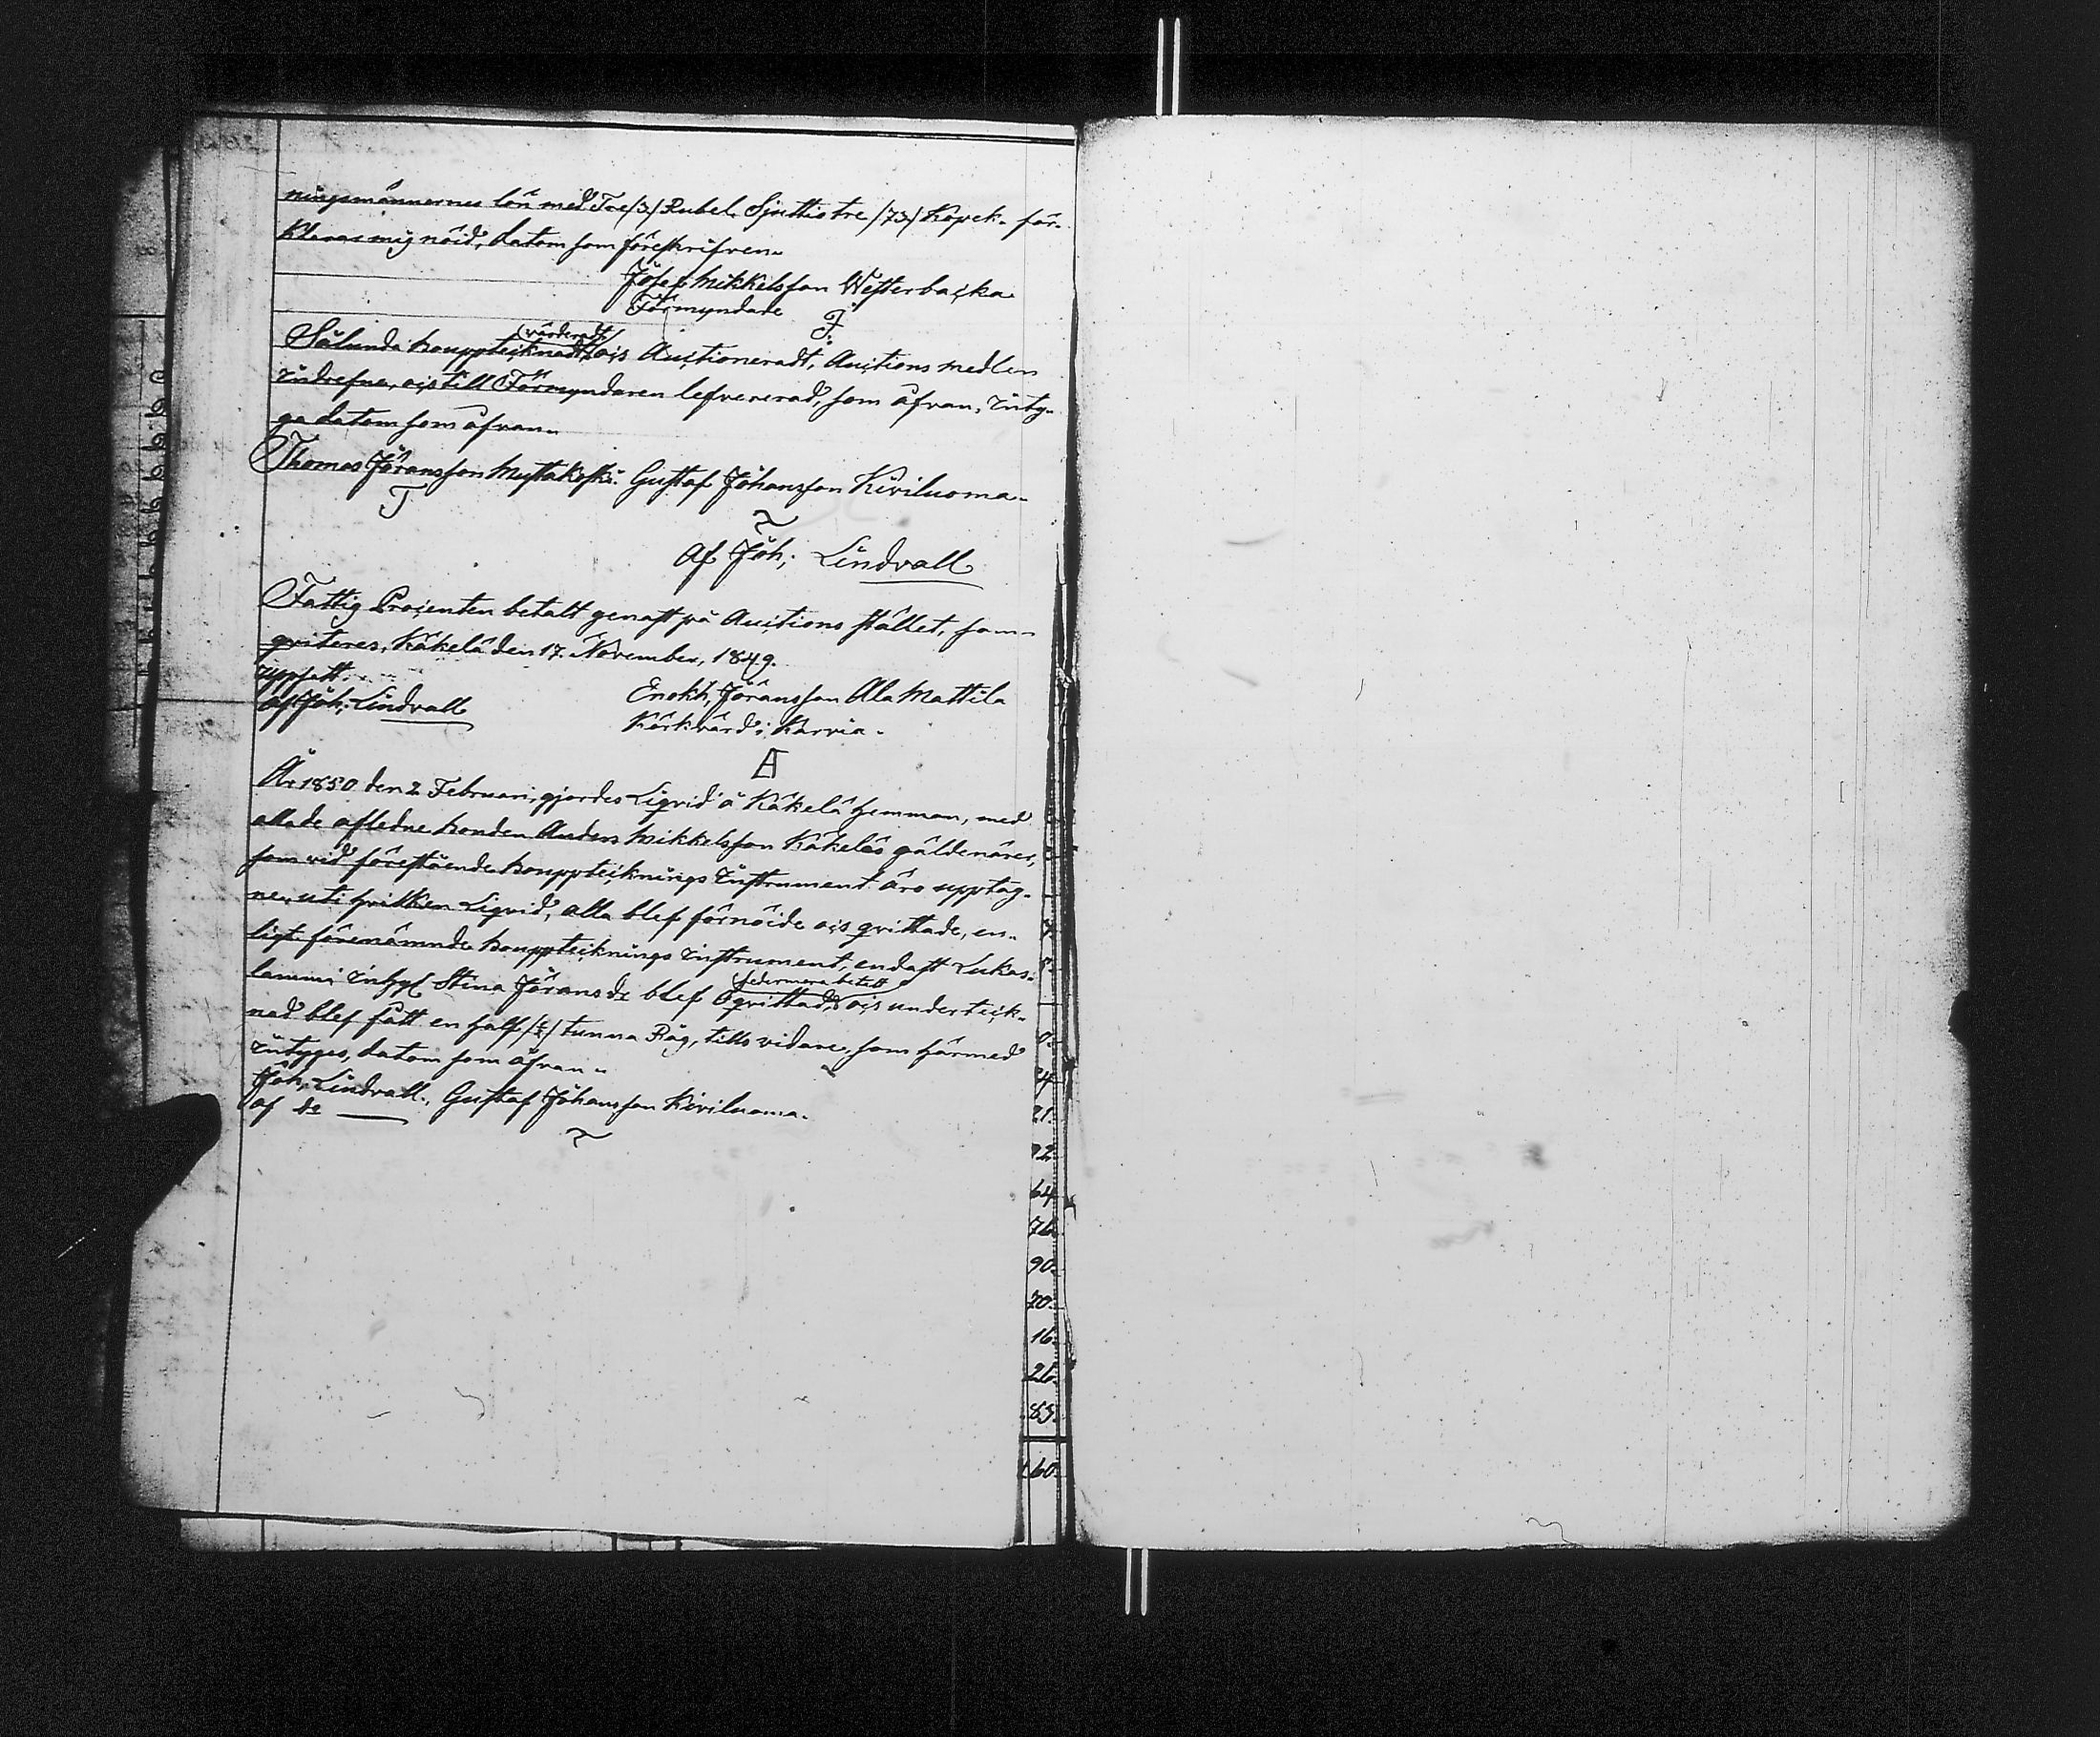 ningsmännernes lön med Tre /3/ Rubel, Sjuttiotre /73/ Kopek. för-
klaras mig nöid, datom som föreskrifven.
Josef Mikkelsson Westerbacka
Förmyndare
F.
Sålunda bouppteiknadt, värderadt, ocs Auctioneradt, Auctions medlen
indrefne, ocs till Förmyndaren lefvererad, som åfvan, inty-
ga datom som åfvan.
Thomas Jöransson Mustakoski. Gustaf Johansson Kiviluoma.
T
Af Joh; Lindvall
Fattig Procenten betalt genast på Auctions stället, som
qviteres, Käkelä den 17. November, 1849.
uppsatt
af Joh; Lindvall
Enokh, Jöransson Ala Mattila
Körkvärd i Karvia.
A
År 1850 den 2 Februari, gjordes Liqvid å Käkelä hemman, med
alla de afledne bonden Anders Mikkelsson Käkeläs gäldenärer,
som vid förestående bouppteiknings Instrument äro upptag-
ne, uti hvilken Liqvid, alla blef förnöide ocs qvittade, en-
ligt förenämnde bouppteiknings instrument, endast Lukas-
lammi Stina Jörans dr blef Oqvittad, federmera betalt ocs underteik-
nad blef fått en half /½/ tunna Råg, tills vidare, som härmed
intyges, datom som åfvan.
Joh; Lindvall. Gustaf Johansson Kiviluoma.
af do
4
21.
12.
64
76
90.
70.
16.
26.
85.
60.